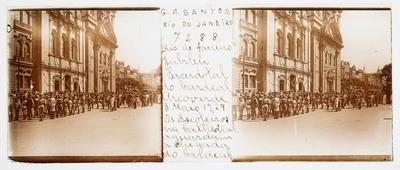 G. A. SANTOS
RIO DE JANEIRO
7288.
Rio de Janeiro
Jubileu
Sacerdotal
do Cardeal
Arcoverde
3 Maio 1924
Os escoteiros
na Cathedral
aguardam
a chegada
do Cardeal